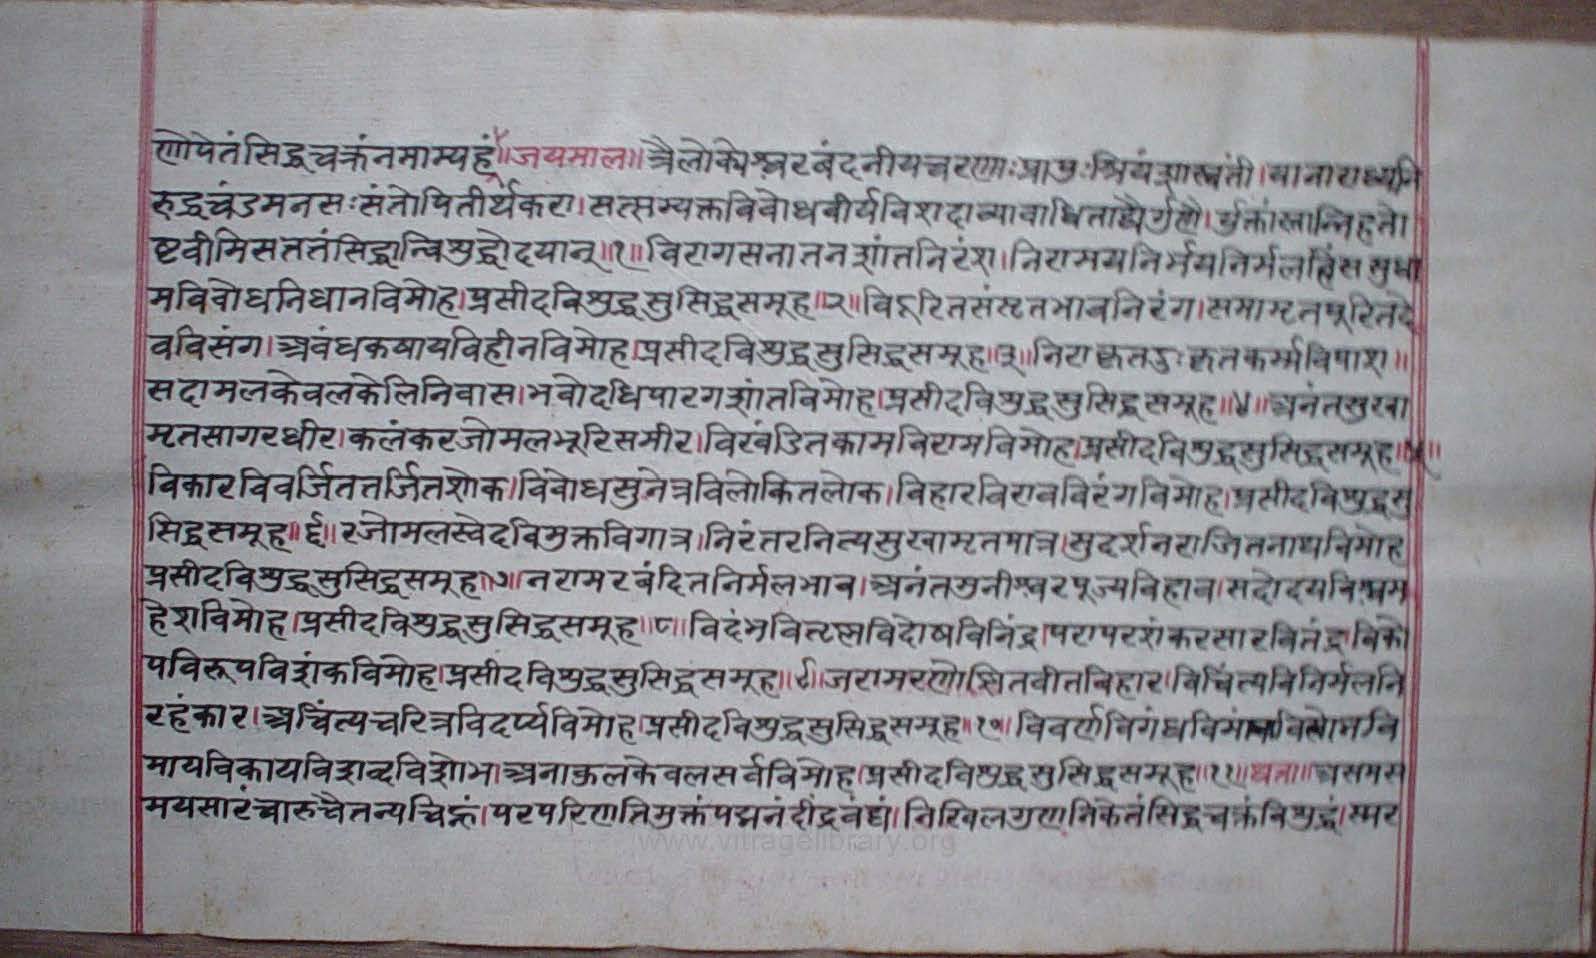 णोपेतंसिद्धचक्रंनमाम्यहं॥जयमाल॥त्रैलोक्येश्वरबंदनीयचरणाःप्रापुःश्रियंशास्वतीं।यानाराध्यनि
रुद्धचंडमनसःसंतोपितीर्थंकरा।सत्सम्यक्तविबोधवीर्यविशदाव्याबाधिताद्यैर्गुणै।र्युक्तांस्तान्निहतो
ष्टवीमिसततंसिद्धान्विशुद्धोदयान्॥१॥विरागसनातनशांतनिरंश।निरामयनिर्भयनिर्मलहंससुधा
मविबोधनिधानविमोह।प्रसीदविशुद्धसुसिद्धसमूह॥२॥विदूरितसंसृतभावनिरंग।समामृतपूरितदे
वविसंग।अबंधकषायविहीनविमोह।प्रसीदविशुद्धसुसिद्धसमूह॥३॥निराकृतदुःकृतकर्म्मविपाश॥
सदामलकेवलकेलिनिवास।भवोदधिपारगशांतविमोह।प्रसीदविशुद्धसुसिद्धसमूह॥४॥अनंतसुखा
मृतसागरधीर।कलंकरजोमलभूरिसमीर।विखंडितकामविरामविमोह।प्रसीदविशुद्धसुसिद्धसमूह॥५॥
विकारविवर्जिततर्जितशोक।विबोधसुनेत्रविलोकितलोक।विहारविरावविरंगविमोह।प्रसीदविशुद्धसु
सिद्धसमूह॥६॥रजोमलस्वेदविमुक्तविगात्र।निरंतरनित्यसुखामृतपात्र।सुदर्शनराजितनाथविमोह
प्रसीदविशुद्धसुसिद्धसमूह॥७॥नरामरबंदितनिर्मलभाव।अनंतमुनीश्वरपूज्यविहाव।सदोदयविश्वम
हेशविमोह।प्रसीदविशुद्धसुसिद्धसमूह॥८॥विदंभवितृष्णविदोषविनिंद्र।परापरशंकरसारवितंद्र।विको
पविरूपविशंकविमोह।प्रसीदविशुद्धसुसिद्धसमूह॥९॥जरामरणोझितवीतबिहार।विचिंत्यविनिर्मलनि
रहंकार।अचिंत्यचरित्रविदर्प्पविमोह।प्रसीदविशुद्धसुसिद्धसमूह॥१०॥विवर्णविगंधविमानविलोभवि
मायविकायविशब्दविशोभ।अनाकुलकेवलसर्वविमोह।प्रसीदविशुद्धसुसिद्धसमूह॥११॥घता॥असमस
मयसारंचारुचैतन्यचिह्नं।परपरिणतिमुक्तंपद्मनंदींद्रवंद्यं।निखिलगुणनिकेतंसिद्धचक्रंविशुद्धं।स्मर
www.vitragelibrary.org